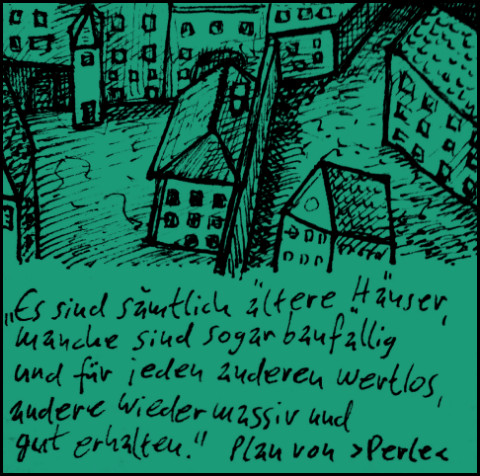 „Es sind sämtlich ältere Häuser,
manche sind sogar baufällig
und für jeden anderen wertlos,
andere wieder massiv und
gut erhalten." Plan von >Perle<